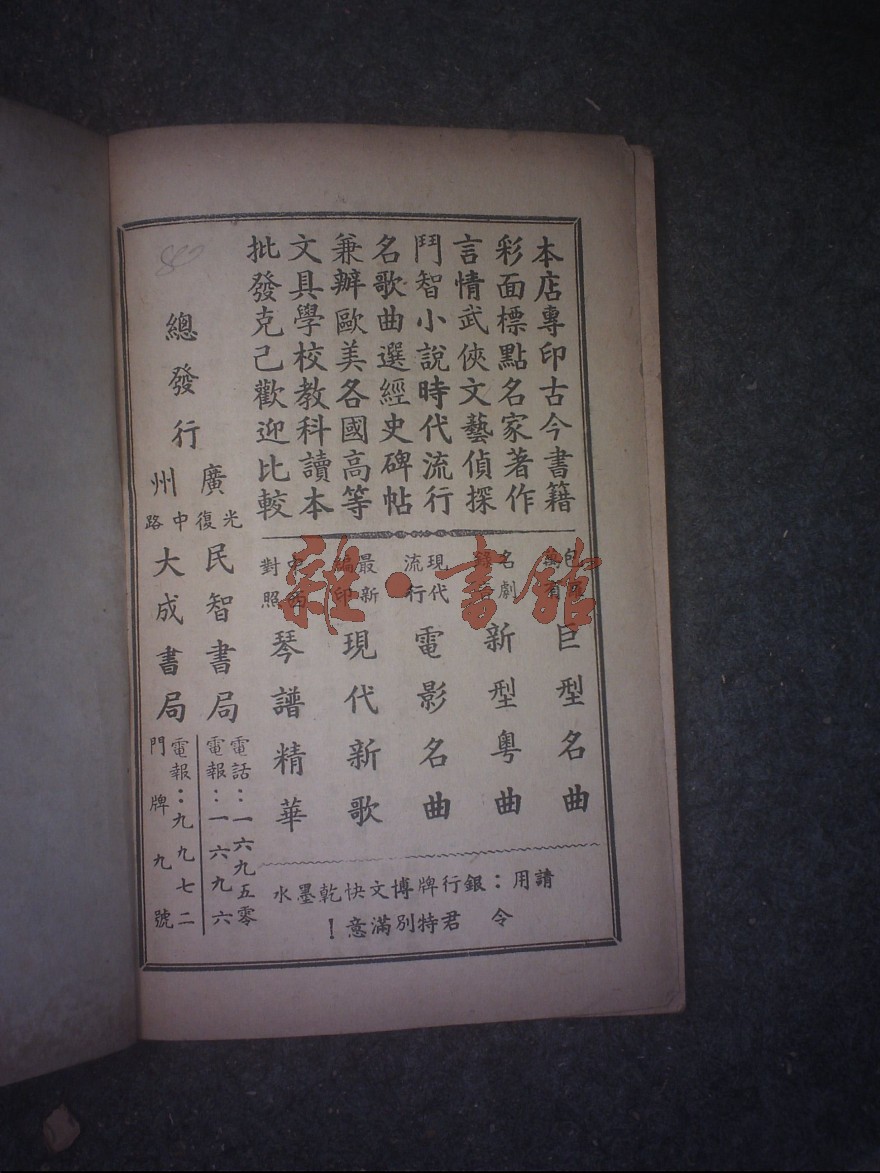 本店專印古今書籍
彩面標點名家著作
言情武俠文藝偵探
鬥智小說時代流行
名歌曲選經史碑帖
兼辦歐美各國高等
文具學校教科讀本
批發克己歡迎比較
包 萬 巨型名曲
名劇 新型粵曲
現代流行 電影名曲
最新編印 現代新歌
中西對照 琴譜精華
請用：銀行牌博文快乾墨水
令君特別滿意！
總發行
廣州
光復中路
民智書局
電話：一六九五零
電報：一六九六
大成書局
電報：九九七二
門牌九號
雜·書館